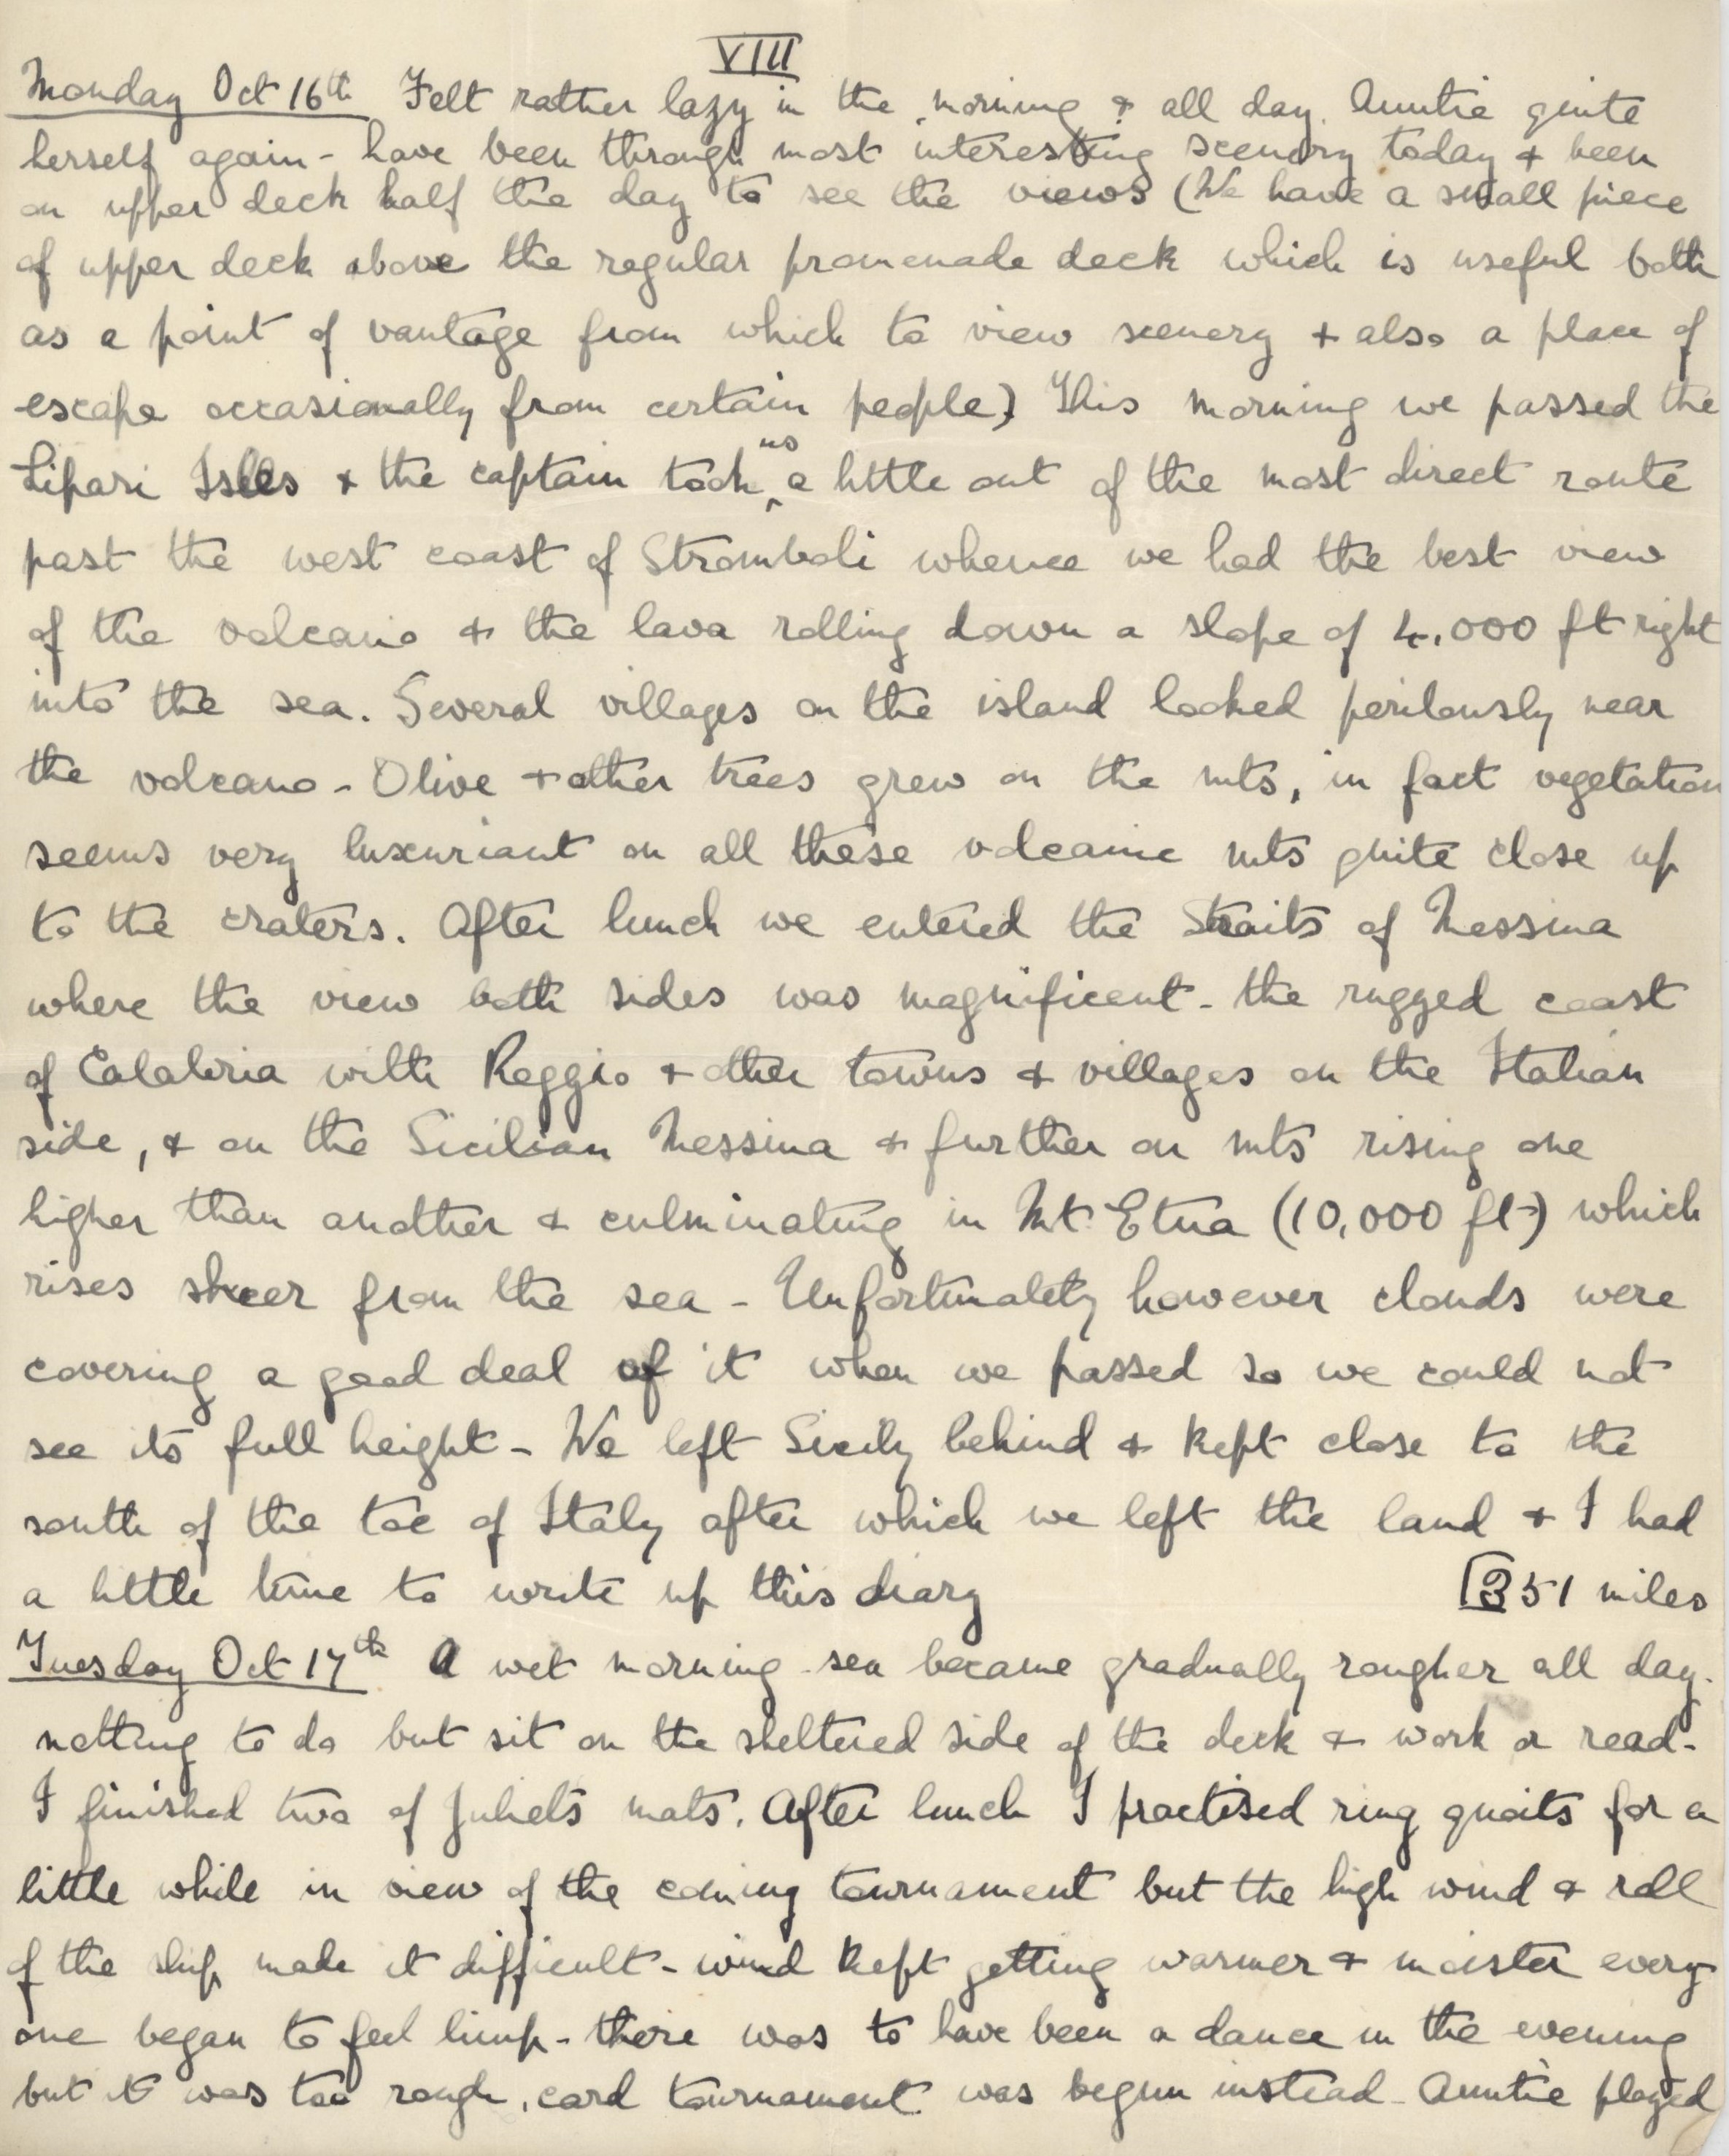 VIII
Monday Oct 16th Felt rather lazy in the morning & all day. Auntie quite
herself again - have been through most interesting scenery today & been
on upper deck half the day to see the views (We have a small piece
of upper deck above the regular promenade deck which is useful both
as a point of vantage from which to view scenery & also a place of
escape occasionally from certain people) This morning we passed the
Lipari Isles & the captain took us a little out of the most direct route
past the west coast of Stromboli whence we had the best view
of the volcano & the lava rolling down a slope of 4,000 ft right
into the sea. Several villages on the island looked perilously near
the volcano - Olive & other trees grew on the mts, in fact vegetation
seems very luxuriant on all these volcanic mts quite close up
to the craters. After lunch we entered the Straits of Messina
where the view both sides was magnificent - the rugged coast
of Calabria with Reggio & other towns & villages on the Italian
side, & on the Sicilian Messina & further on mts rising one
higher than another & culminating in Mt. Etna (10,000 ft) which
rises sheer from the sea - Unfortunately however clouds were
covering a good deal of it when we passed so we could not
see its full height - We left Sicily behind & kept close to the
south of the toe of Italy after which we left the land & I had
a little time to write up this diary 351 miles
Tuesday Oct 17th A wet morning - sea became gradually rougher all day.
nothing to do but sit on the sheltered side of the deck & work or read -
I finished two of Juliet's mats. After lunch I practised ring quoits for a
little while in view of the coming tournament but the high wind & roll
of the ship made it difficult - wind kept getting warmer & moister every
one began to feel limp - there was to have been a dance in the evening
but it was too rough, card tournament was begun instead - Auntie played